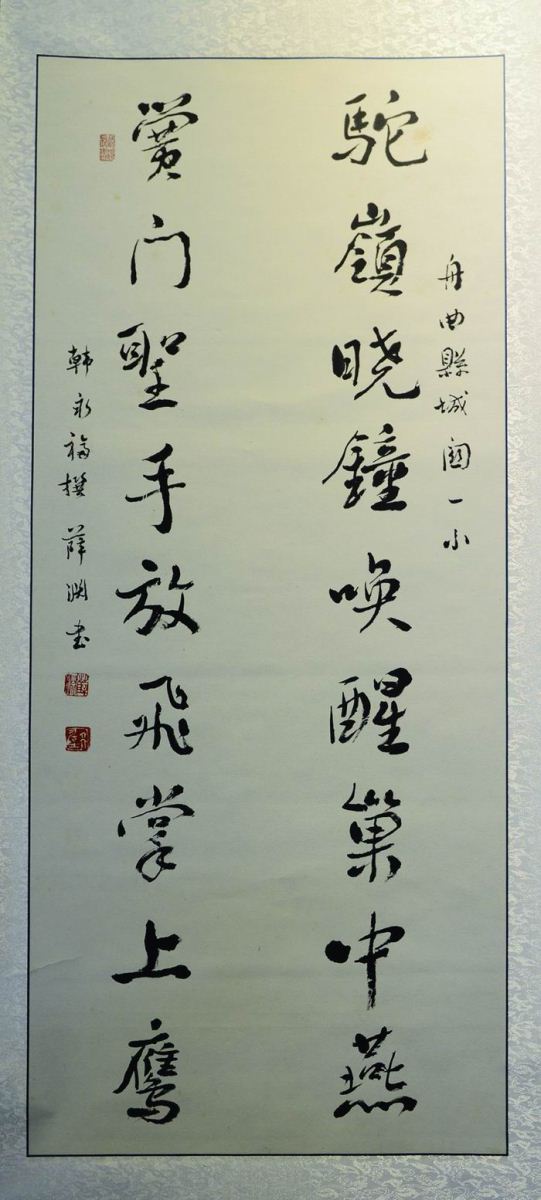 舟曲縣城關一小
駝嶺曉鐘喚醒巢中燕
黌门聖手放飛掌上鷹
韩永福撰 薛渊书